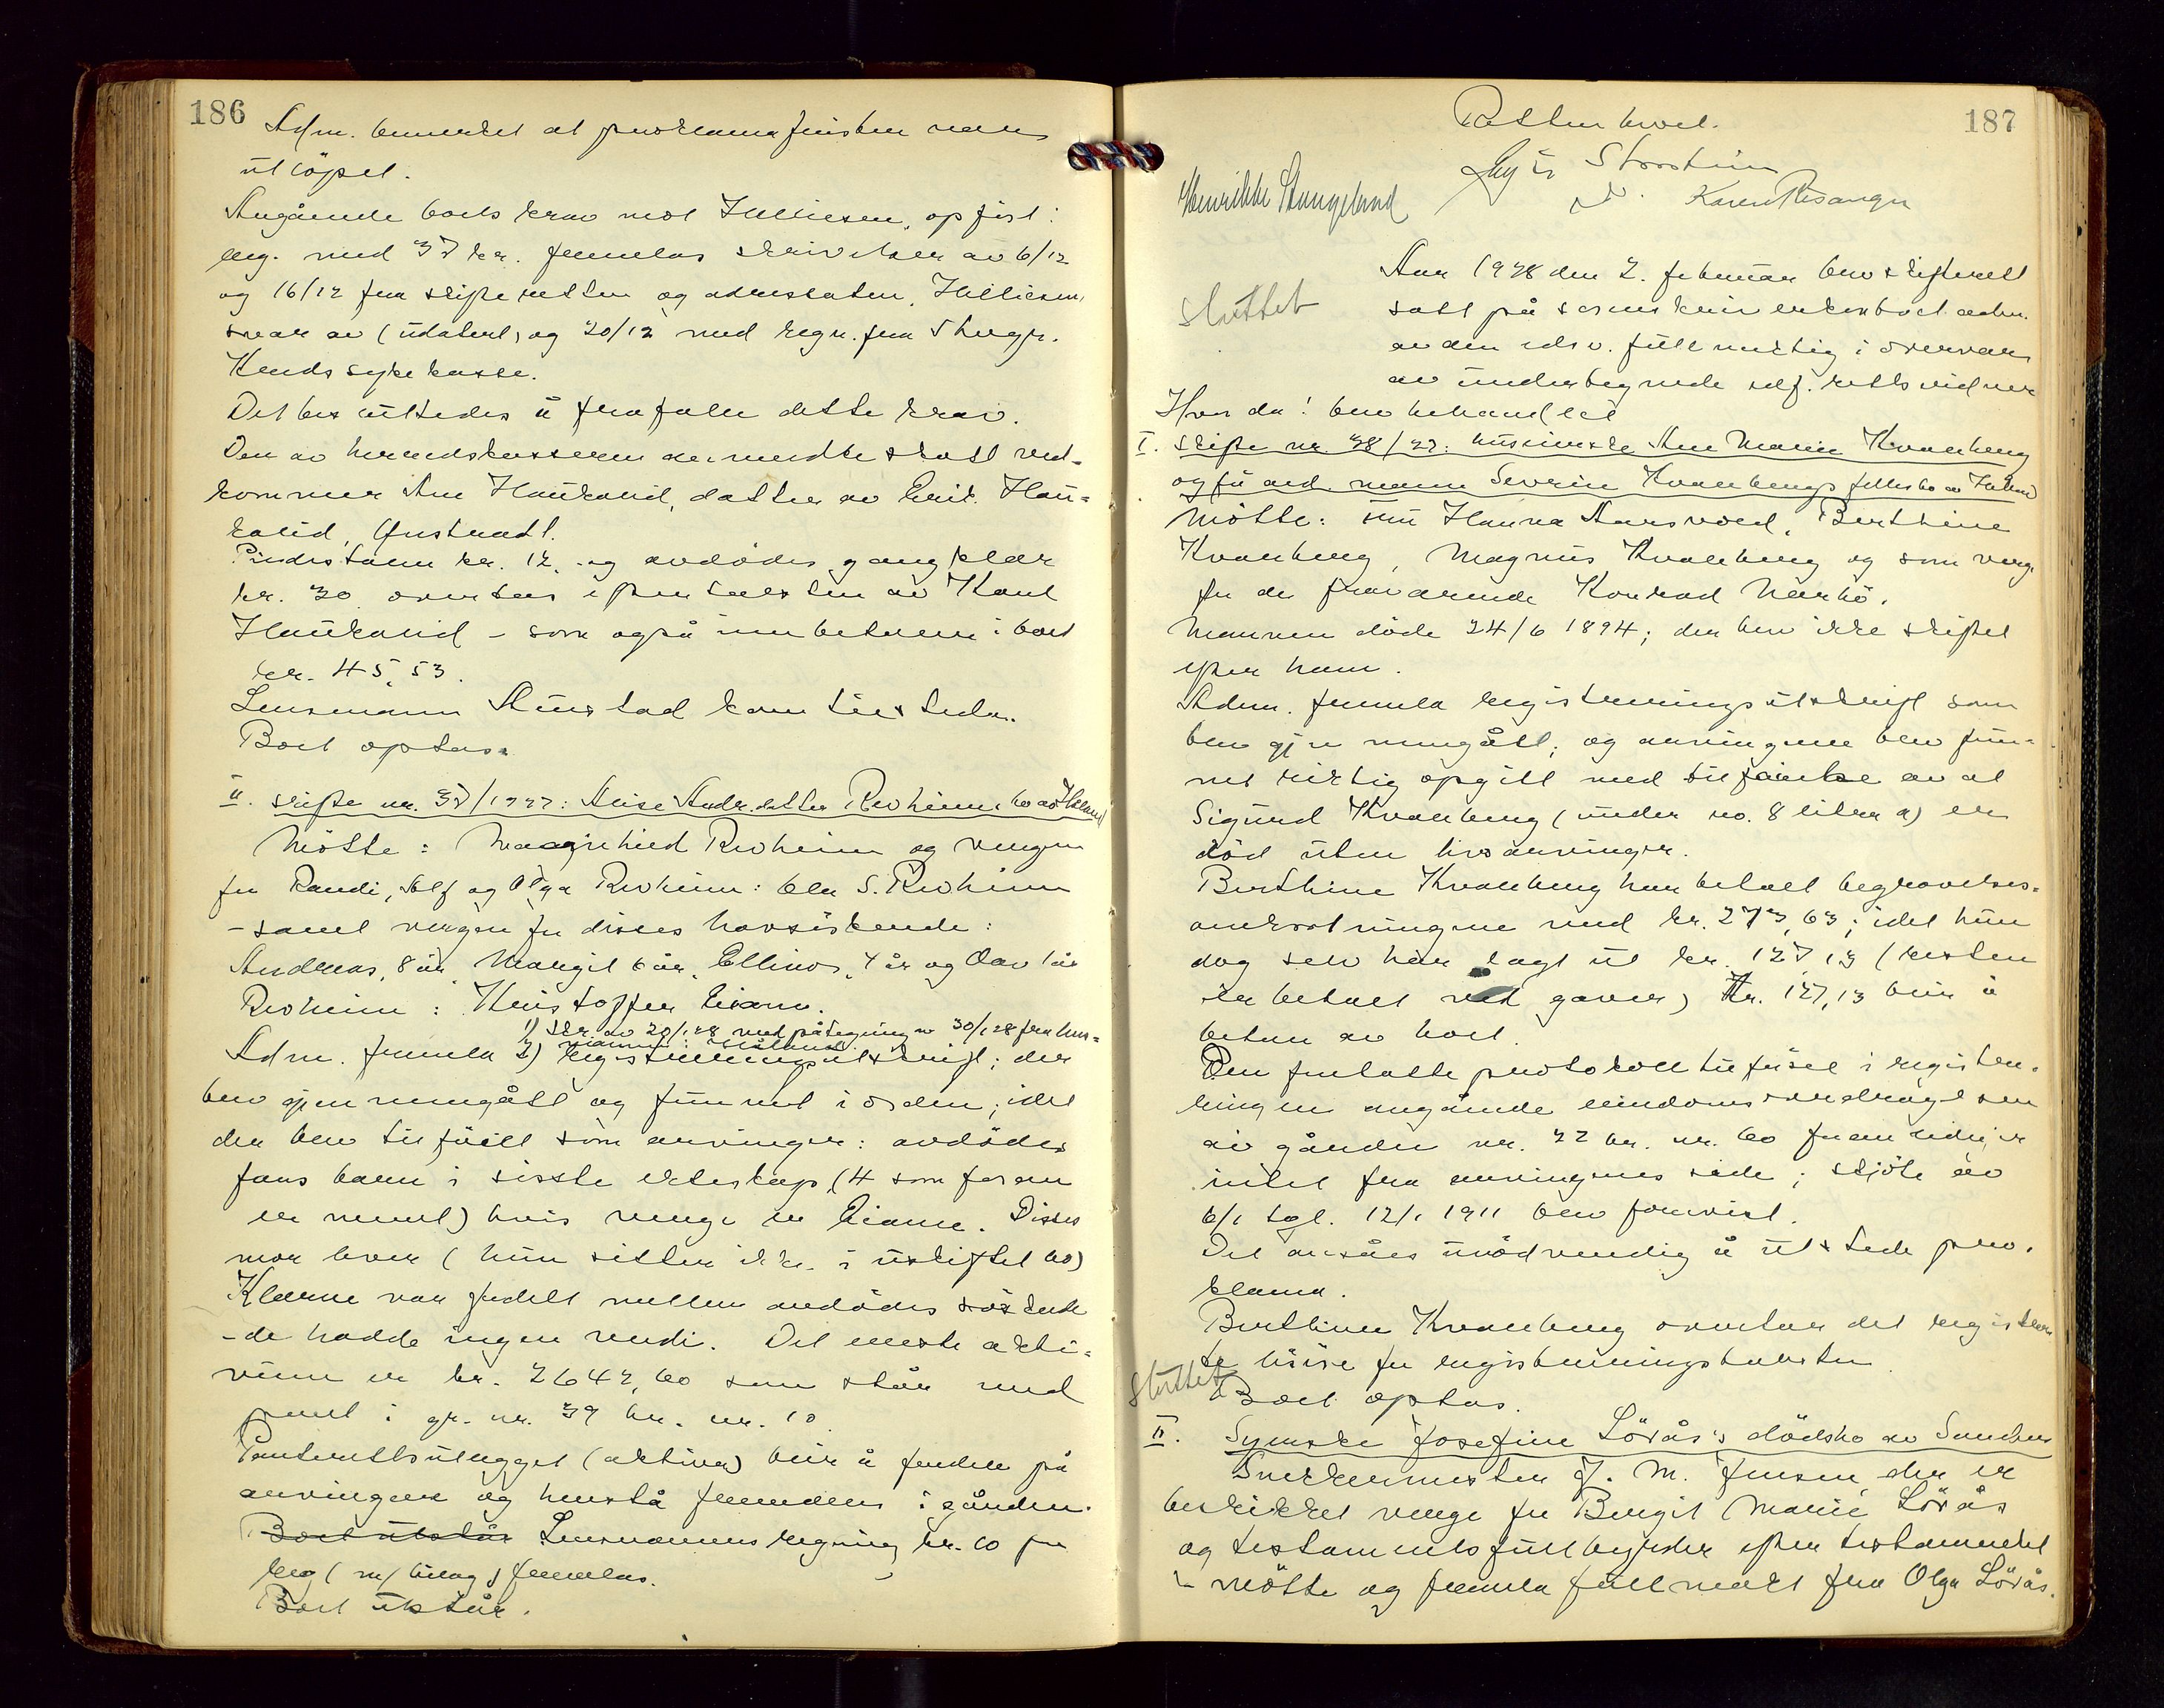 186
Adm. bemerket at proklamafristen var
utlöpet.
Angående boets krav mot Tilliesen, opfört i
reg. med 37 kr. fremlas skrivelser av 6/12
og 16/12 fra skifteretten og advokaten, Tilliesen,
svar av (udatert) og 20/12 med regn. fra
Hends sykekasse.
Det besluttedes å frafale dette krav.
Den av herredskassereren anmeldte skatt ved-
kommer Ane Haukalid, datter av Erik Hau-
kalid, Gristadt.
kr. 12. og avdödes gangklær
kr. 30 overtas efter taksten av
Haukalid - som også innbetaler i boet
kr. 45,53.
Lensmann Aurstad kom tilstede.
Boet optas.
II. Skifte nr. 37/1927: Andr.datter Roheim, bo av
Mötte: Roheim og vergen
for Randi, Alf og Olga Roheim: S. Roheim
- samt vergen for disses havsöskende:
Andreas, 8 år, Margit 6 år, Ellinor, 4 år og Olav 1 år
Roheim: Kristoffer Eiane.
1) Skr. av 20/1 28 med påtegning av 30/1 28 fra
Adm. fremla 2) registreringsutskrift; der
blev gjennemgått og funnet i orden; idet
der blev tilföiet som arvinger: avdödes
fars barn i sisste ekteskap, (4 som foran
er nevnt) hvis verge er Eiane. Disses
mor lever (hun sitter ikke i uskiftet bo)
Klærne var fordelt mellem avdödes söskende
- de hadde ingen verdi. Det eneste akti-
vum er kr. 2642,60 som står med
pant i gr. nr. 39 br. nr. 10
Panteretts (aktiva) blir å fordele på
arvingene og henstå fremdeles i gården.
Boet utstår Lensmannens regning kr. 10 for
reg (m/bilag) fremlas.
Boet utstår.
187
Retten hevet.
Storsteim
Henrikke Stangeland Karen Risanger
sluttet
Aar 1928 den 2. februar blev skifterett
satt på sorenskriverkontoret adm.
av den eds v. fullmektig i overvær
av undertegnede edf. rettsvidner
Hvor da! blev behandlet
I. Skifte nr. 38/27: husmorske Ane Marie Kvaleberg
og för avd. mann Severin Kvalebergs fellesbo av
Mötte: fru Hanna Aarsvoll, Berthine
Kvaleberg, Magnus Kvaleberg og som verge
for de fraværende Konrad Nærbö.
Mannen döde 24/6 1894; der blev ikke skiftet
efter ham.
Adm. fremla registreringsutskrift som
blev gjennemgått; og arvingene blev fun-
net riktig opgitt med tilföielse av at
Sigurd Kvaleberg (under no. 8 litra a) er
död uten livsarvinger.
Berthine Kvaleberg har betalt begravelses-
omkostningene med kr. 273,63; idet hun
dog selv har lagt ut kr. 127,13 (resten
er betalt ved gaver) Kr. 127,13 blir å
betale av boet.
Den forlatte protokoll tilföiset i registre-
ringen angående eiendomsoverdragelsen
av gården nr. 22 br. nr. 60 er
intet fra arvingenes side; skjöte av
6/1 tgl. 12/1 1911 blev forevist.
Det ansåes unödvendig å utstede pro-
klama.
Berthine Kvaleberg overtar det registrer-
te lösöre for registreringstaksten
sluttet
Boet optas.
II. Syerske Josefine Lövås's dödsbo av Sandnes
Snekkermester J. M. Jensen, der er
beskikket verge for Bergit Marie Lövås
og testamentsfullbyrder efter testamentet
- mötte og fremla fullmakt fra Olga Lövås.